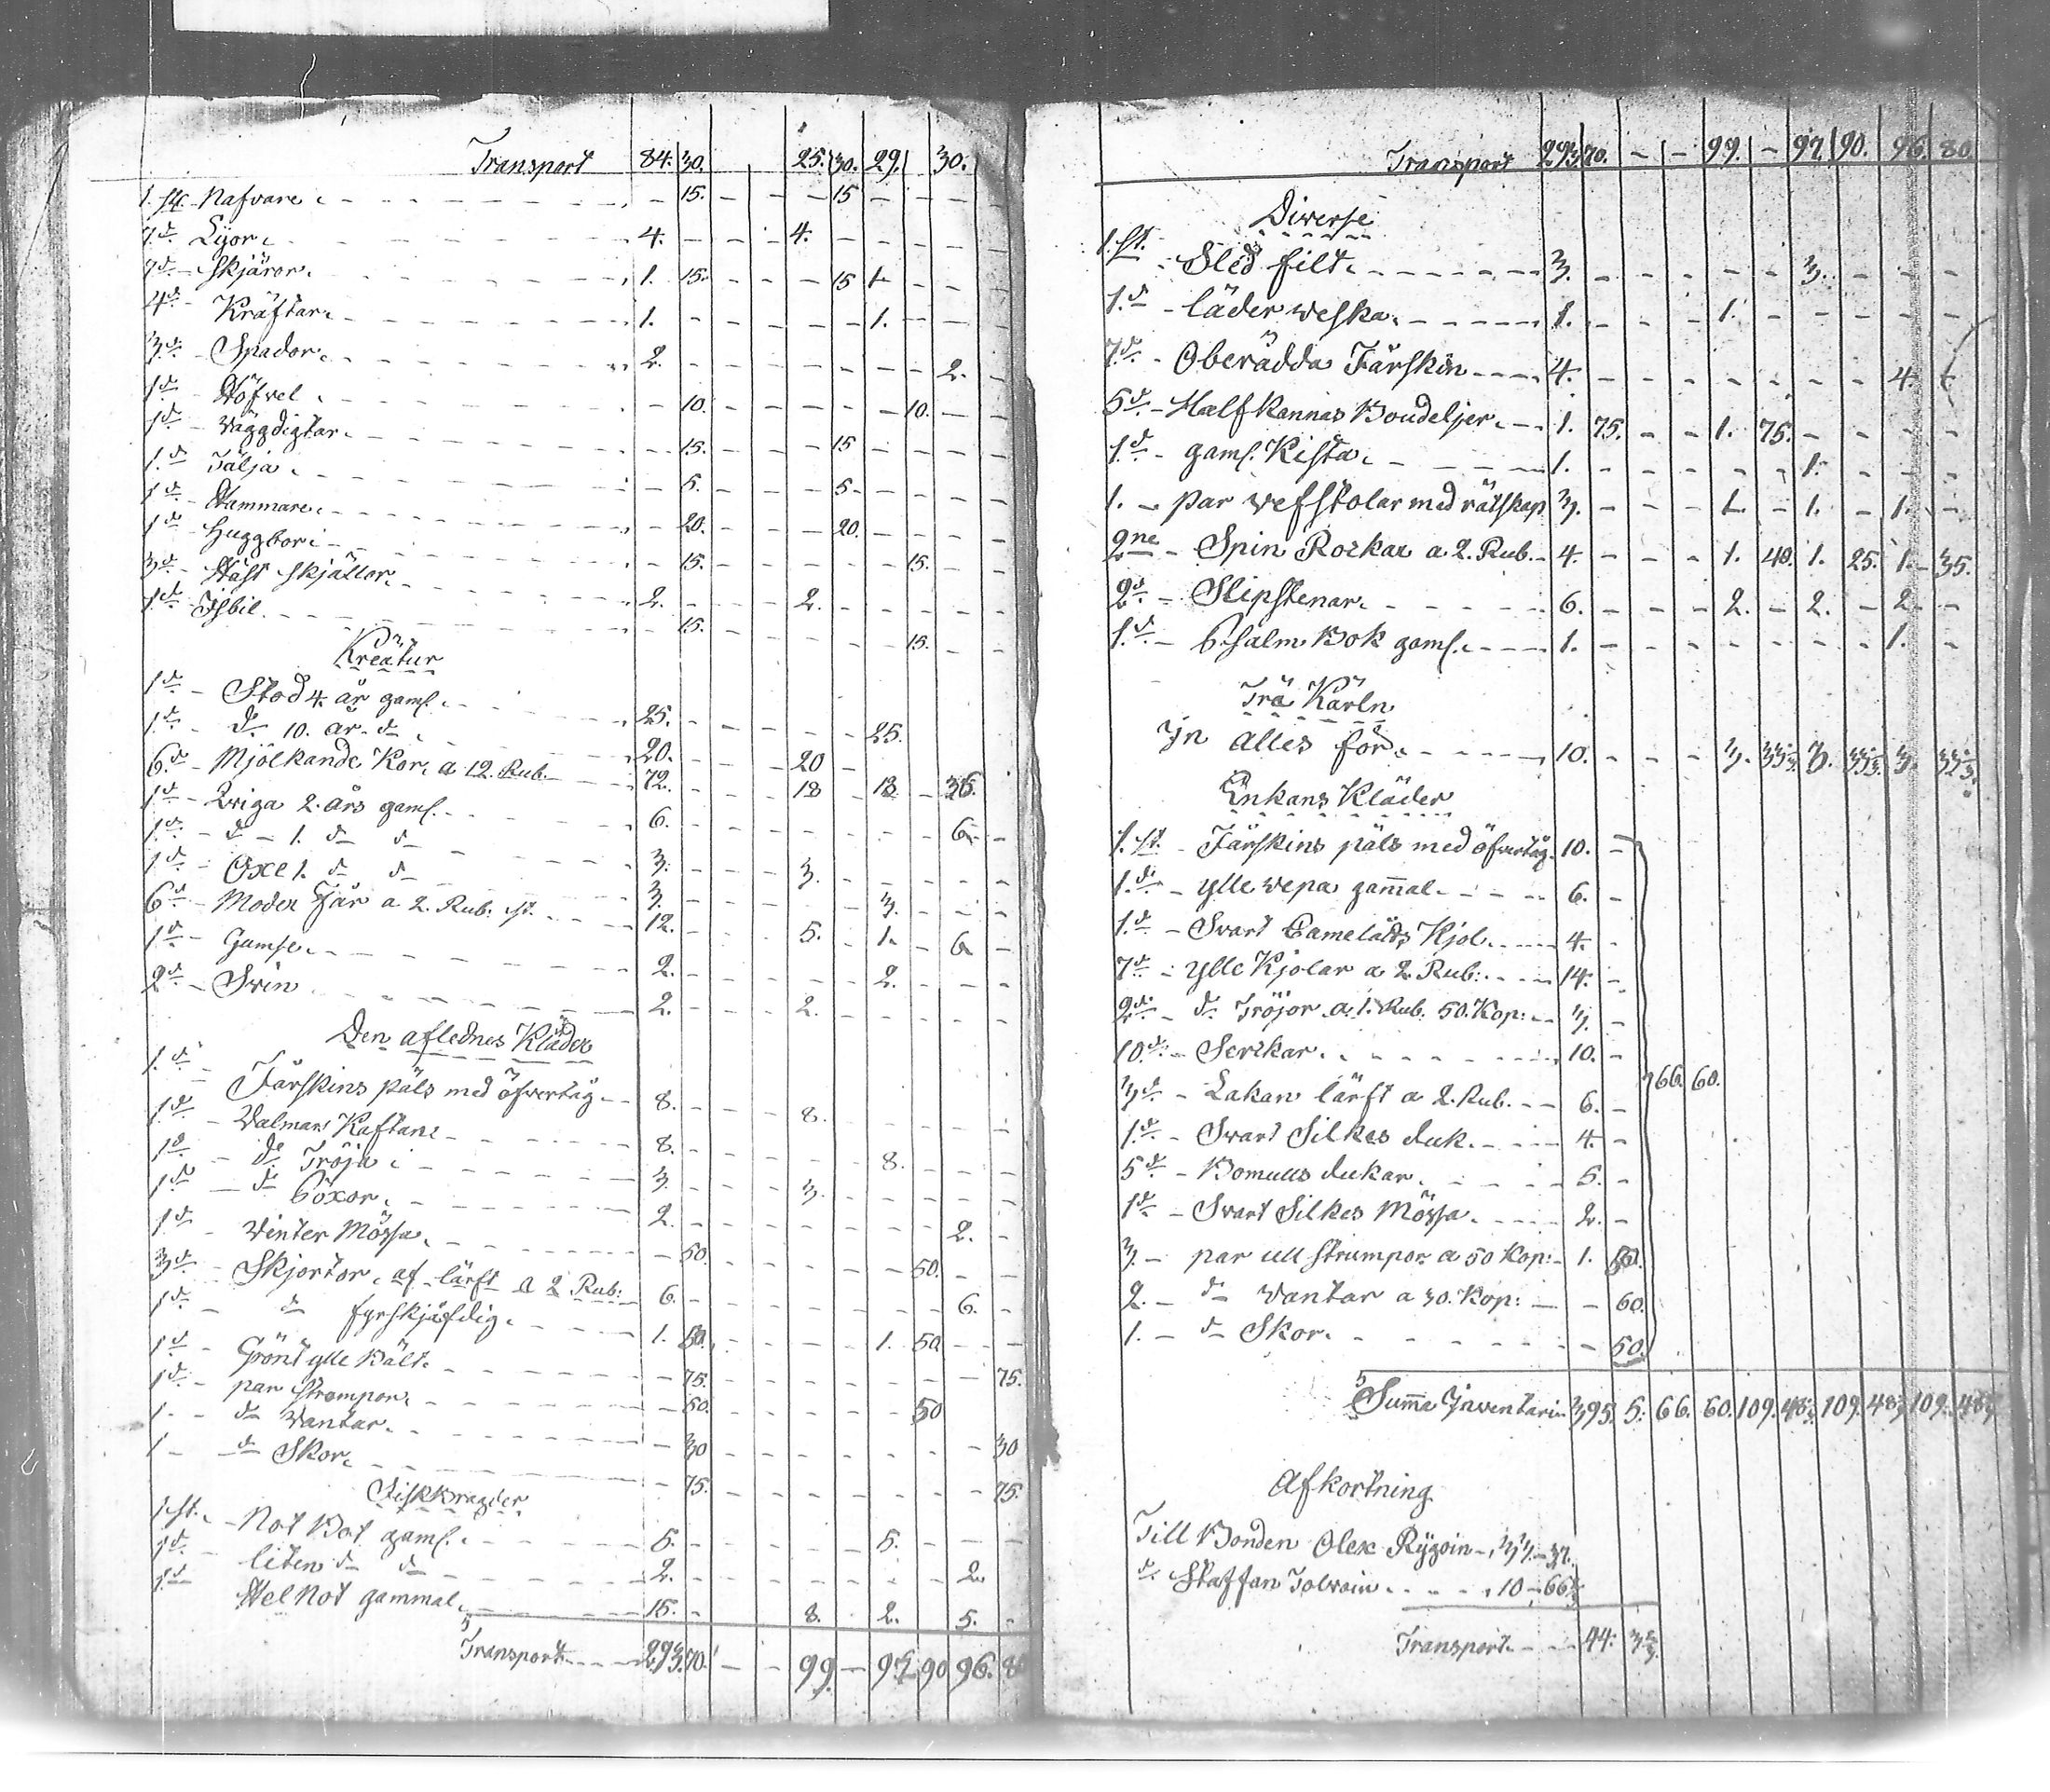 Transport 84. 30. 25. 30. 29. 30.
1. st. Nafvare - 15. - - 15 - - - -
7 d:o Lyor 4. - - 4. - - - -
7 d:o Skjäror. 1. 15. - - - 15 1 - - -
4 d:o Kräftar 1. - - - - 1. - - -
3 d:o Spador 2. - - - - - - 2. -
1 d:o Höfvel - 10. - - - - - 10. - -
1 d:o Väggdigtar - 15. - - - 15 - - - -
1. d:o Tälja - 5. - - - 5. - - - -
1 d:o Hammare - 20. - - - 20. - - - -
1 d:o Huggbor - 15. - - - - - 15. - -
3 d:o Häst skjällor 2. - - - 2. - - - - -
1 d:o Isbil - 15. - - - - - 15. - -
Kreatur
1 d:o - Stod 4. år gaml. 25. - - - - - 25.
1 d:o - d:o 10. år d:o 20. - - - 20 -
6. d:o - Mjölkande Kor. a 12. Rub. 72. - - 18 - 18 - 36.
1 d:o - Qviga 2. års gaml. 6. - - - - - - - 6 -
1. d:o - d:o - 1. d:o d:o 3. - - - 3. - - - - -
1 d:o - Oxe 1. d:o d:o 3. - - - - - 3. - - -
6 d:o - Moder Får a 2. Rub. st. 12. - - 5. - 1. - 6 -
1 d:o - Gumse 2. - - - - - 2. - - -
2 d:o - Swin 2. - - - 2. - - - - -
Den aflednes Kläder
1. d:o - Fårskins päls med öfvertåg 8. - - - 8. - - - - -
1. d:o - Valmars Kaftan 8. - - - - - 8. - - -
1 d:o - d:o Tröja 3. - - - 3. - - - - -
1 d:o - d:o Böxor 2. - - - - - - - 2. -
1 d:o - Vinter Mössa - 50. - - - - - 50. - -
3 d:o - Skjortor af lärft a 2 Rub: 6. - - - - - - - 6. -
1 d:o - d:o fyrskjäftig 1. 50. - - - - 1. 50 - -
1 d:o - Grönt ylle Bält - 75. - - - - - - - 75.
1 d:o - par Strompor - 50. - - - - - 50
1. - d:o Vantar - 30 - - - - - - - 30
1 - d:o Skor - 75. - - - - - - - 75.
Fiskbragder
1 st. - Not Bot gaml. 5. - - - - - 5. - - -
1 d:o liten d:o d:o 2. - - - - - - - 2.
1 d:o Hel Not gammal 15. - 8. - 2. - 5. -
Transport 293. 70. - - 99. - 97. 90 96. 80
Transport 293. 70. - - - 99. - 97. 90. 96. 80.
Diverse
1. st. - Sled filt 3. - - - - - 3. - - -
1. d:o - läder weska 1. - - - 1. - - - - -
7 d:o - Oberädda Fårskin 4. - - - - - - - 4.
5 d:o - Half Kannas Boudeljer 1. 75. - - 1. 75. - - - -
1 d:o - gaml. Kista 1. - - - - - 1. - - -
1. - par wefstolar med rätskap 3. - - - 1. - 1. - 1. -
2ne - Spin Rockar a 2. Rub. 4. - - - 1. 40. 1. 25. 1. 35.
2 d:o - Slipstenar 6. - - - 2. - 2. - 2. -
1. d:o - Psalm Bok gaml. 1. - - - - - - - 1. -
Trä Kärln
In alles för 10. - - - 3. 33⅓. 3. 33⅓. 3. 33⅓.
Enkans Kläder
1. st. - Fårskins päls med öfvertåg. 10. -
1. d:o - ylle wepa gam̄al 6. -
1. d:o - Svart Camelåtts Kjol 4. -
7 d:o - ylle Kjolar a 2 Rub: 14. -
2 d:o - d:o Tröjor a 1. Rub. 50. Kop: 3. -
10. d:o - Serckar 10. -
3 d:o - Lakan lärft a 2. Rub. 6. - 66. 60.
1. d:o - Svart Silkes duk 4. -
5 d:o - Bomulls dukar 5. -
1 d:o - Svart Silkes Mössa 2. -
3. - par ull Strumpor a 50 Kop: 1. 50.
2. - d:o Vantar a 30. Kop: - 60.
1. - d:o Skor - 50.
Summa Inventarium 395. 5. 66. 60. 109. 48⅓ 109. 48⅓ 109. 48⅓
Afkortning
Till Bonden Olex Rygoin 33. 37.
d:o Staffan Tolvain 10 - 66⅔
Transport 44. 3⅔.